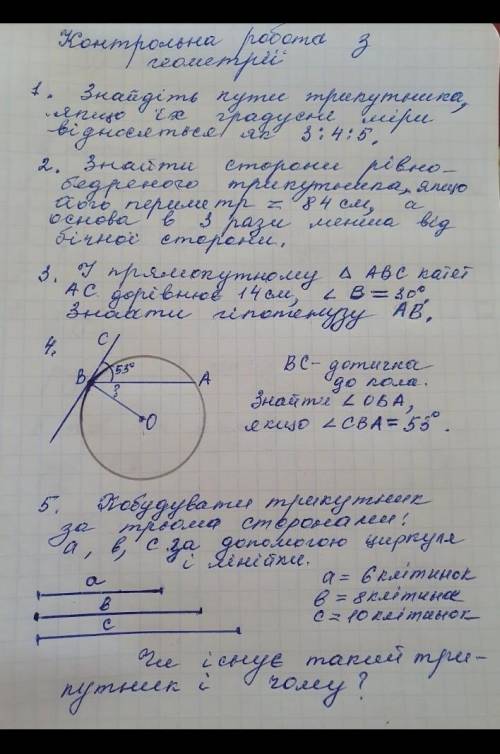 Контрольна робота з
геометрії
1. Знайдіть кути трикутника,
якщо їх градусні міри
відносяться як 3:4:5.
2. Знайти сторони рівно-
бедреного трикутника, якщо
його периметр = 84 см, а
основа в 3 рази менша від
бічної сторони.
3. У прямокутному △ ABC катет
AC дорівнює 14 см, ∠ B = 30°.
Знайти гіпотенузу AB.
4.
C
53°
B
?
A
O
BC - дотична
до кола.
Знайти ∠OBA,
якщо ∠CBA = 53°.
5. Побудувати трикутник
за трьома сторонами:
a, b, c за допомогою циркуля
і лінійки.
a
b
c
a = 6 клітинок
b = 8 клітинок
c = 10 клітинок
Чи існує такий три-
кутник і чому?